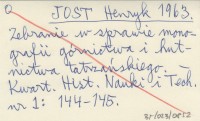 JOST Henryk 1963.
Zebranie w sprawie mono-
grafii górnictwa i hut-
nictwa tatrzańskiego. –
Kwart. Hist. Nauki i Tech.
nr 1: 144-145.